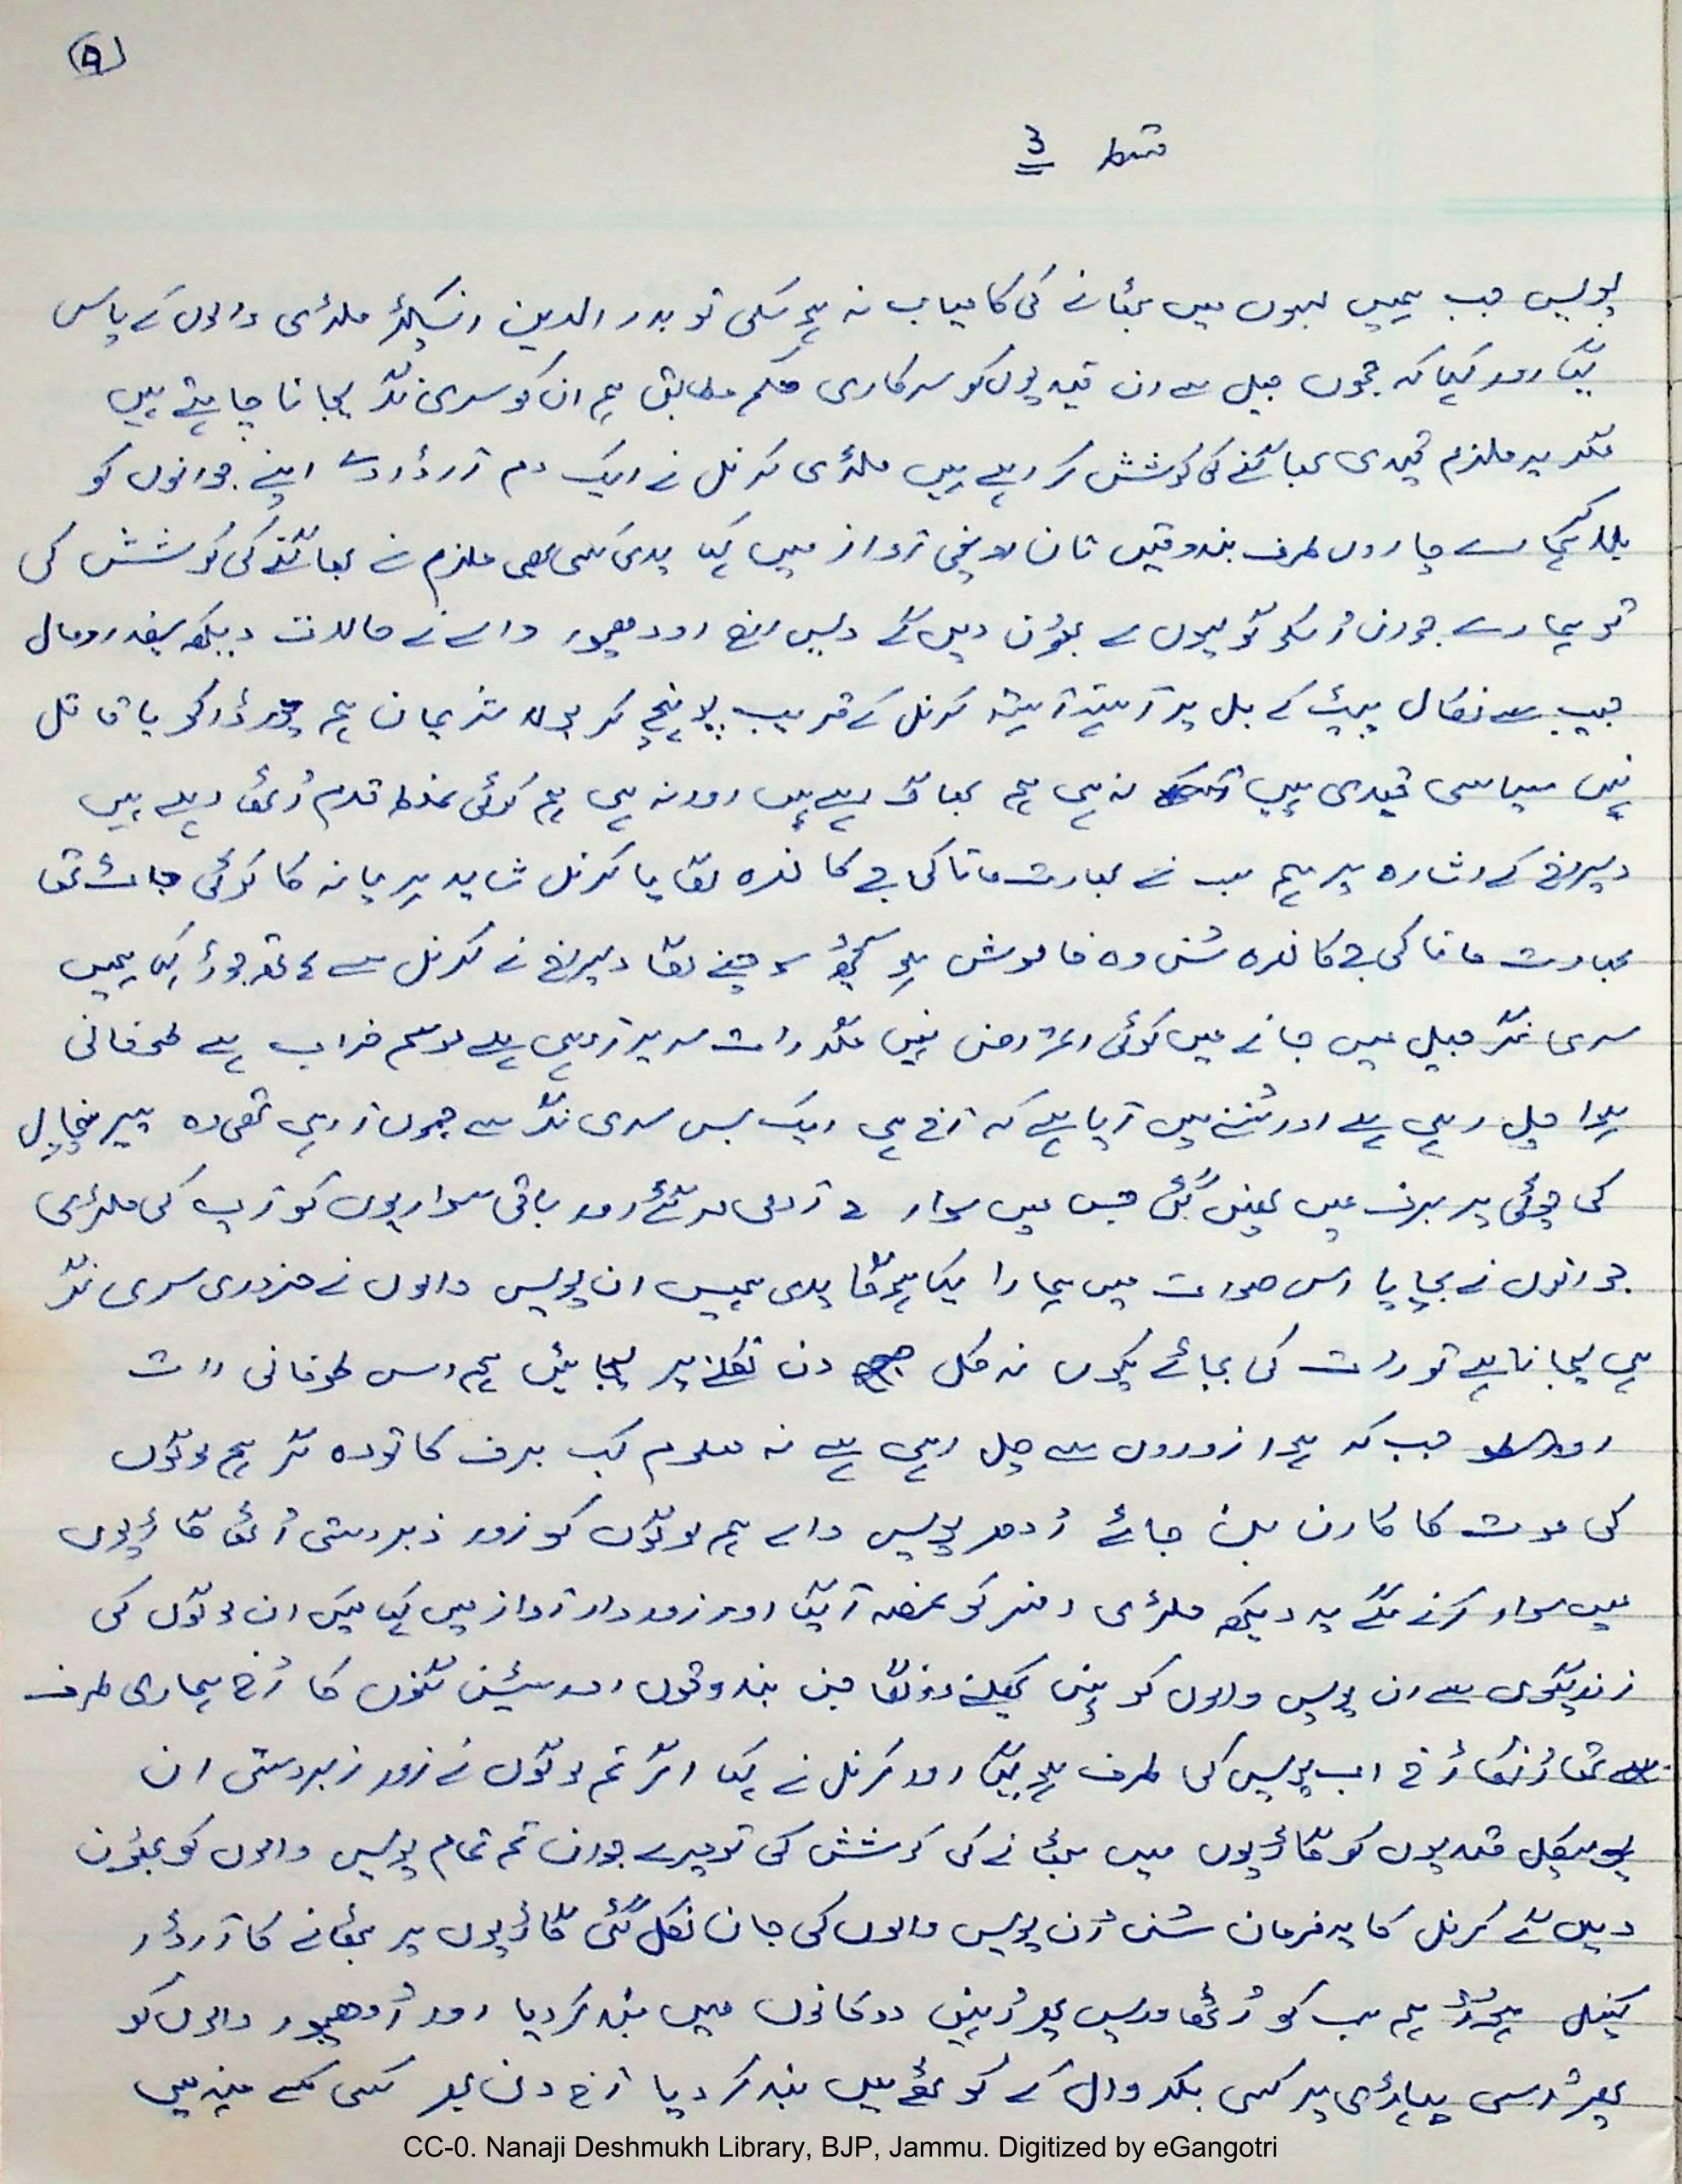 ۹
قسط 3
پولیس جب ہمیں بسوں میں بٹھانے کی کامیاب نہ ہو سکی تو بدر الدین انسپکٹر ملٹری والوں کے پاس
گیا اور کہا کہ جموں جیل سے ان قیدیوں کو سرکاری حکم مطابق ہم ان کو سری نگر لیجانا چاہتے ہیں
مگر یہ ملزم قیدی بھاگنے کی کوشش کر رہے ہیں ملٹری کرنل نے ایک دم آرڈر دے اپنے جوانوں کو
بلا کر ہمارے چاروں طرف بندوقیں تان اونچی آواز میں کہا یدی کسی بھی ملزم نے بھاگنے کی کوشش کی
تو ہمارے جوان اُسکو گولیوں سے بھون دیں گے دیس راج اودھمپور والے نے حالات دیکھ سفید رومال
جیب سے نکال پیٹ کے بل پر آہستہ آہستہ کرنل کے قریب پہنچ کر بولا شریمان ہم چور ڈاکو یا قاتل
نہیں سیاسی قیدی ہیں نہ ہی ہم بھاگ رہے ہیں اور نہ ہی ہم کوئی غلط قدم اُٹھا رہے ہیں
دیسراج کے اشارہ پر ہم سب نے بھارت ماتا کی جے کا نعرہ لگایا کرنل شاید ہریانہ کا کوئی جاٹ تھا
بھارت ماتا کی جے کا نعرہ سُن وہ خاموش ہو کچھ سوچنے لگا دیسراج نے کرنل سے ہاتھ جوڑ کہا ہمیں
سری نگر جیل میں جانے میں کوئی اعتراض نہیں مگر رات سر پر آ رہی ہے موسم خراب ہے طوفانی
ہوا چل رہی ہے اور سُننے میں آیا ہے کہ آج ہی ایک بس سری نگر سے جموں آ رہی تھی وہ پیر پنچال
کی چوٹی پر برف میں پھنس گئی جس میں سوار 2 آدمی مر گئے اور باقی سواریوں کو آپ کی ملٹری
جوانوں نے بچایا اس صورت میں ہمارا کیا ہوگا یدی ہمیں ان پولیس والوں نے ضروری سری نگر
ہی لیجانا ہے تو رات کی بجائے کیوں نہ کل دن نکلنے پر لیجائیں ہم اس طوفانی رات
اور جب کہ ہوا زوروں سے چل رہی ہے نہ معلوم کب برف کا تودہ گر ہم لوگوں
کی موت کا کارن بن جائے اُدھر پولیس والے ہم لوگوں کو زور زبردستی اُٹھا گاڑیوں
میں سوار کرنے لگے یہ دیکھ ملٹری افسر کو غصہ آ گیا اور زوردار آواز میں کہا میں ان لوگوں کی
زندگیوں سے ان پولیس والوں کو نہیں کھیلنے دونگا جن بندوقوں اور سٹین گنوں کا رُخ ہماری طرف
تھا اُنکا رُخ اب پولیس کی طرف ہو گیا اور کرنل نے کہا اگر تم لوگوں نے زور زبردستی ان
پولیٹیکل قیدیوں کو گاڑیوں میں بٹھانے کی کوشش کی تو میرے جوان تم تمام پولیس والوں کو بھون
دیں گے کرنل کا یہ فرمان سُن اُن پولیس والوں کی جان نکل گئی گاڑیوں پر بٹھانے کا آرڈر
کینسل ہو ہم سب کو اُٹھا واپس پھر اُنہیں دوکانوں میں بند کر دیا اور اُدھمپور والوں کو
پھر اُسی پہاڑی پر کسی بکروال کے کوٹھے میں بند کر دیا آج دن بھر کسی کے منہ میں
CC-0. Nanaji Deshmukh Library, BJP, Jammu. Digitized by eGangotri